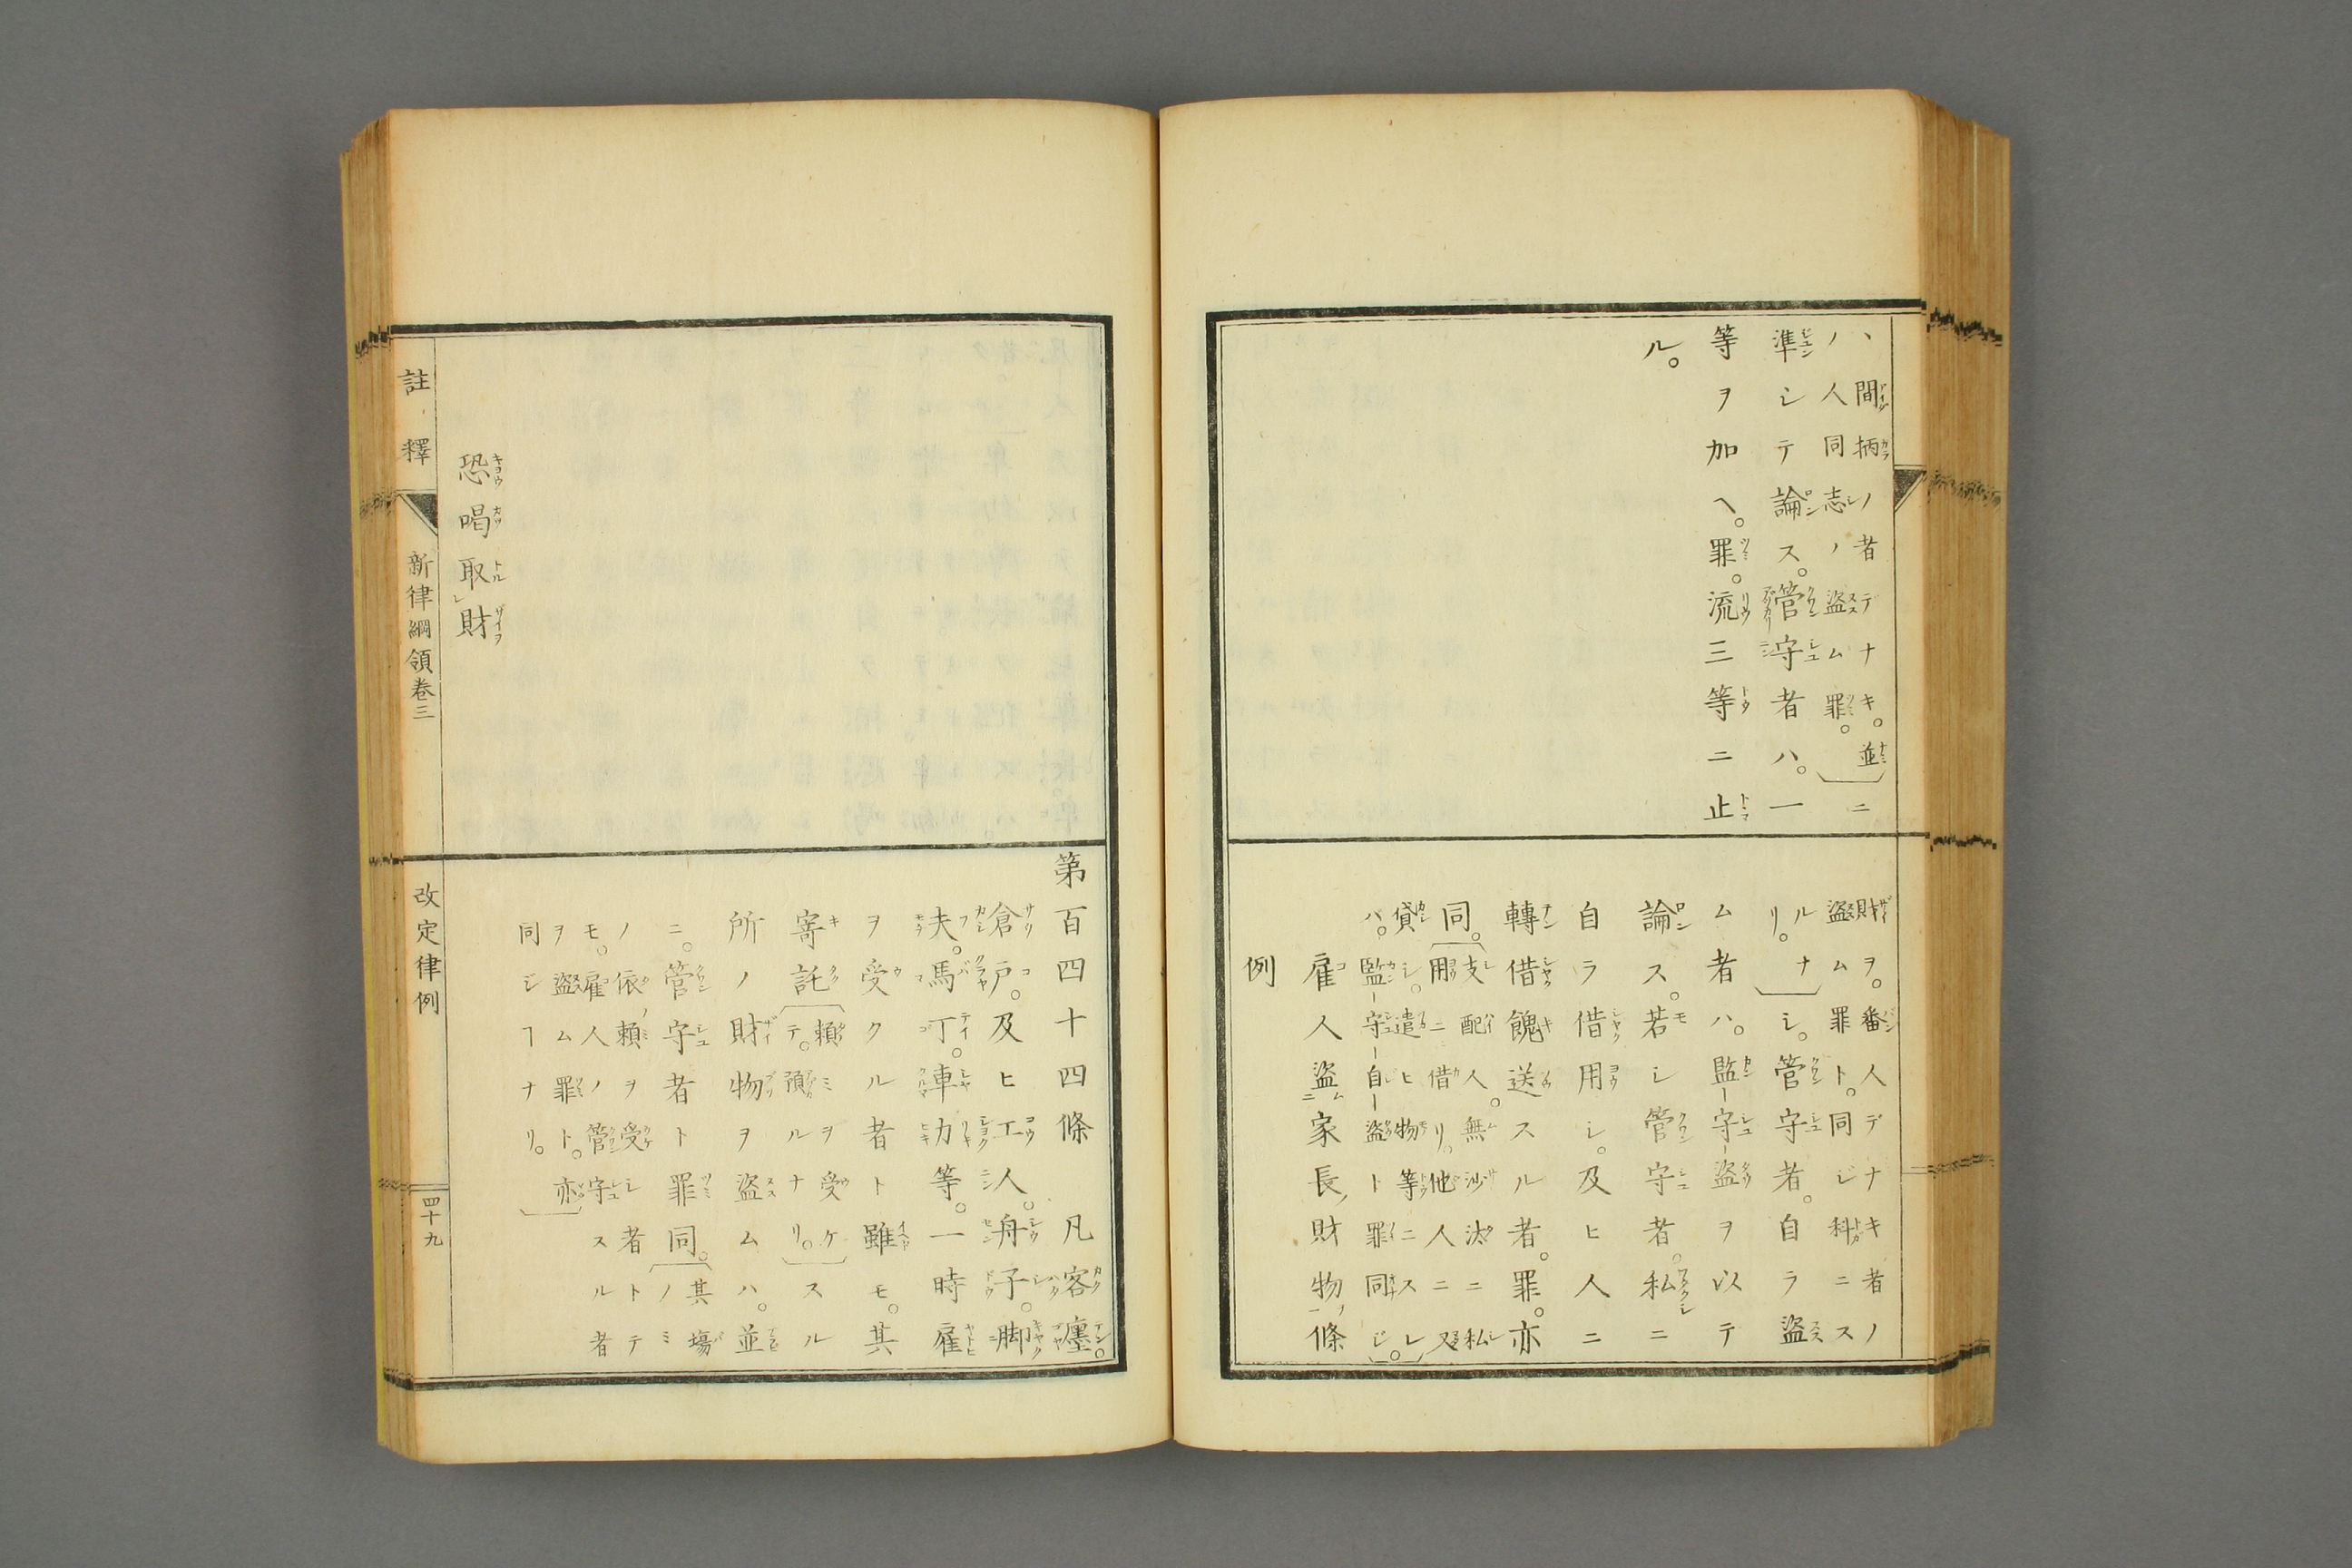 ハ間柄ノ者デナキ。並ニ
ノ人同志ノ盗ム罪。
準シテ論ス。管守者ハ。一
等ヲ加ヘ。罪。流三等ニ止
ル。
財ヲ。番人デナキ者ノ
盗ム罪ト。同ジ科ニス
ルナ
リ。
シ。管守者。自ラ盗
ム者ハ。監守盗ヲ以テ
論ス。若シ管守者。私ニ
自ラ借用シ。及ヒ人ニ
轉借餽送スル者。罪。亦
同。
支配人。無沙汰ニ私
用ニ借リ。他人ニ又
貸シ。遣ヒ物等ニスレ
バ。監守自盗ト罪同ジ。
雇人盗家長財物條
例
第百四十四條 凡客廛。
倉戸。及ヒ工人。舟子。脚
夫。馬丁。車力等。一時雇
ヲ受クル者ト雖モ。其
寄託
頼ミヲ受ケ
テ。預ルナリ。
スル
所ノ財物ヲ盗ムハ。並
ニ。管守者ト罪同。
其場
ノミ
ノ依頼ヲ受シ者トテ
モ。雇人ノ管守スル者
ヲ盗ム罪ト。亦
同シヿナリ。
恐喝取財
註釋
新律綱領卷三
改定律例
四十九